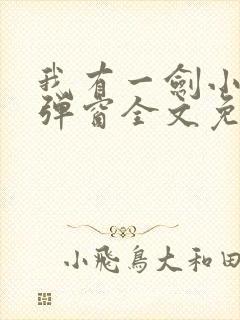 我有一剑小
弹窗全文免
小飛鳥大和田